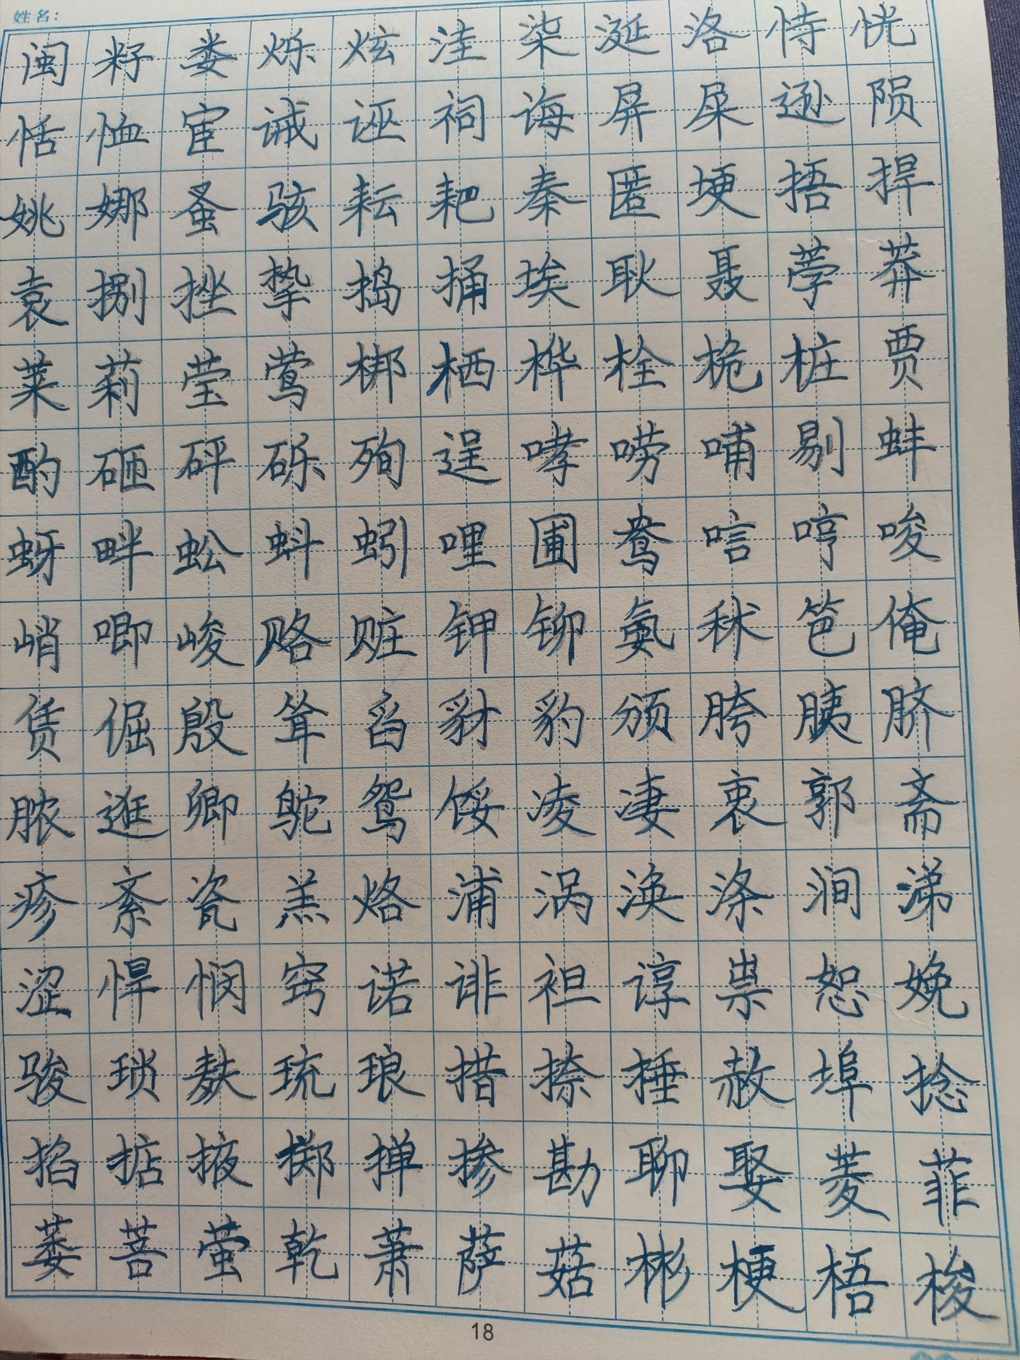 姓名:
闽籽娄烁炫洼柒涎洛恃恍
恬恤宦诫诬祠诲屏屎逊陨
姚娜蚤骇耘耙秦匿埂捂捍
袁捌挫挚捣捅埃耿聂荸莽
莱莉莹莺梆栖桦栓桅桩贾
酌砸砰砾殉逞哮唠哺剔蚌
蚜畔蚣蚪蚓哩圃鸯唁哼唆
峭唧峻赂赃钾铆氨秫笆俺
赁倔殷耸舀豺豹颁胯胰脐
脓逛卿鸵鸳馁凌凄衷郭斋
疹紊瓷羔烙浦涡涣涤涧涕
涩悍悯窍诺诽袒谆祟恕娩
骏琐麸琉琅措捺捶赦埠捻
掐掂掖掷掸掺勘聊娶菱菲
萎菩萤乾萧萨菇彬梗梧梭
18